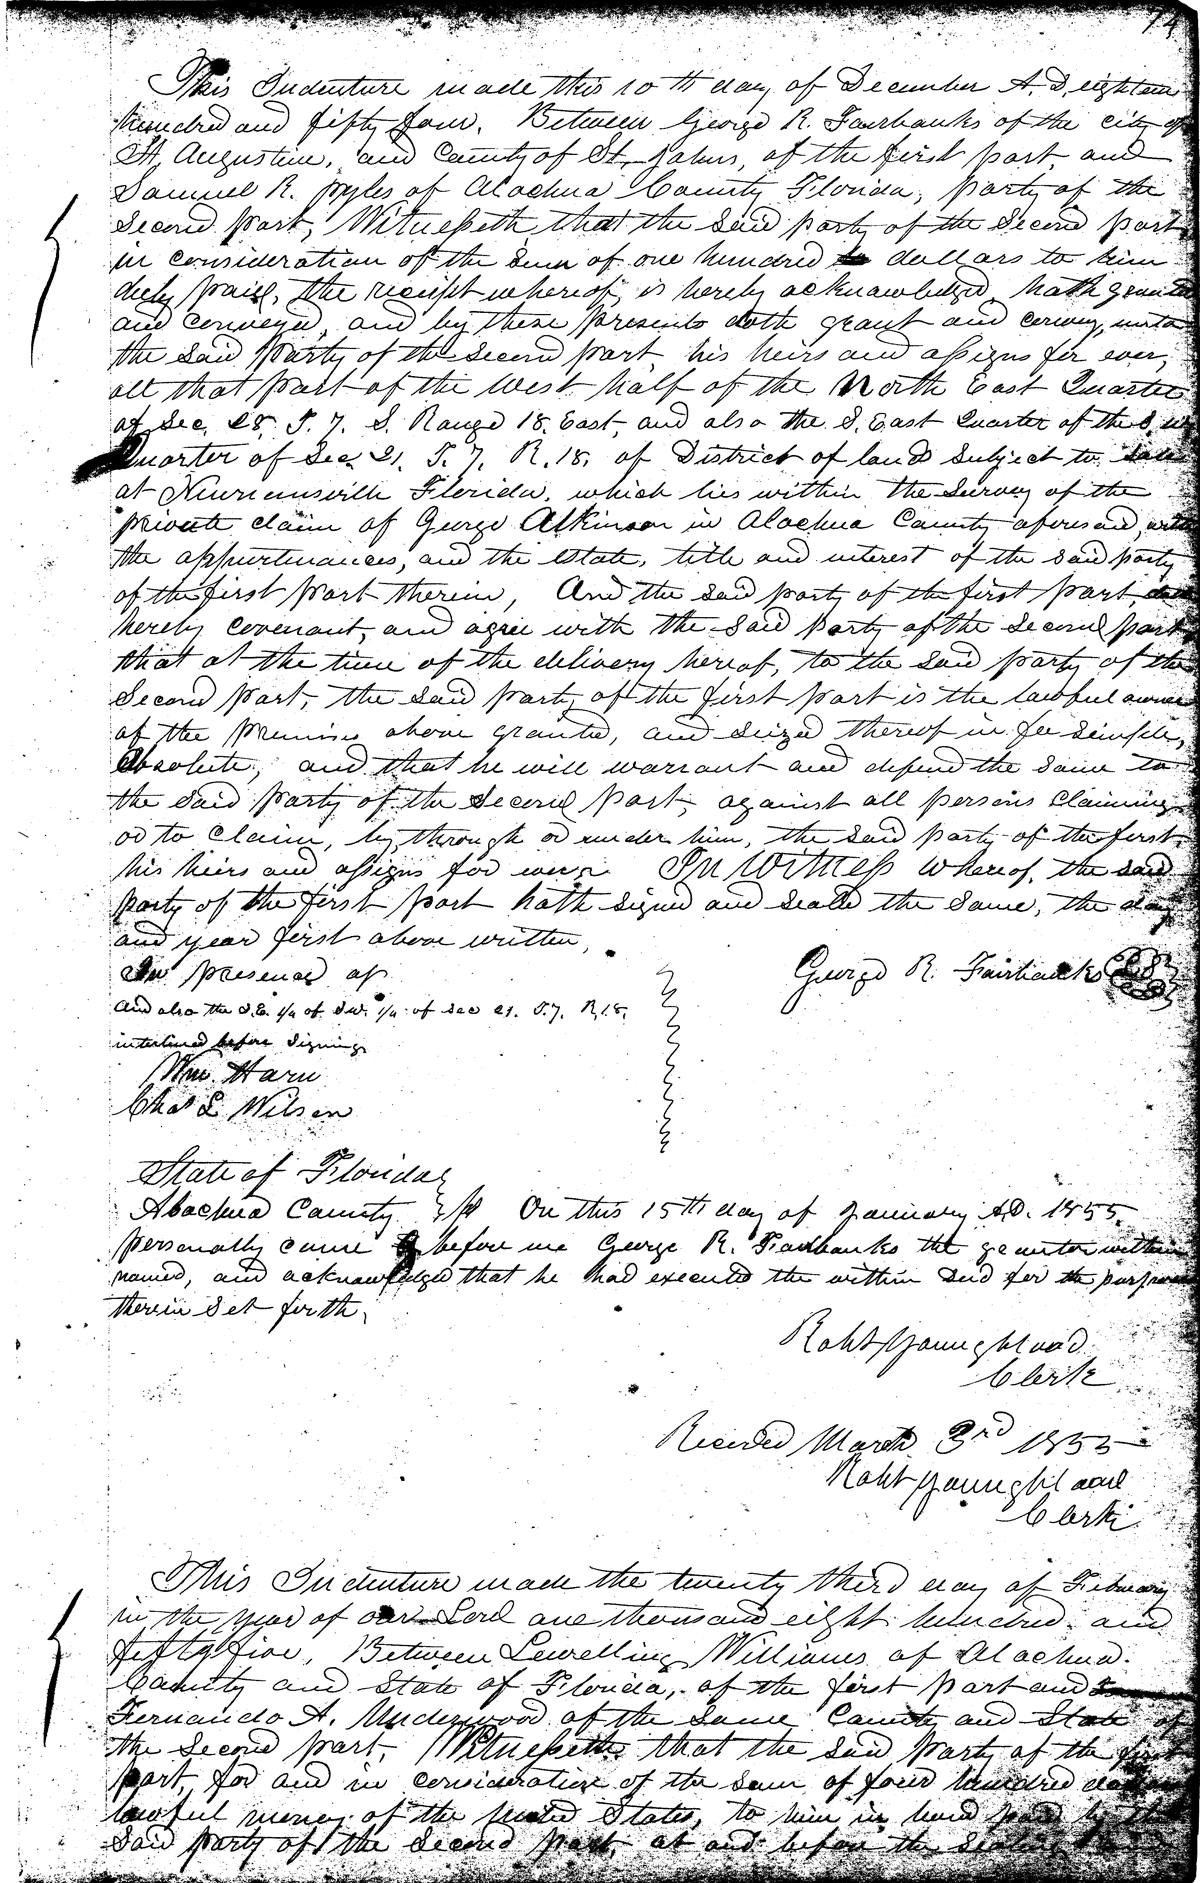 74
This Indenture made this 10th day of December A.D. eighteen
hundred and fifty four. Between George R. Fairbanks of the city of
St. Augustine, and County of St. Johns, of the first part and
Samuel R. Pyles of Alachua County Florida, party of the
Second part, Witnesseth that the said party of the second part
in consideration of the sum of one hundred dollars to him
duly paid, the receipt whereof is hereby acknowledged hath granted
and conveyed, and by these presents doth grant and convey, unto
the said party of the second part his heirs and assigns for ever,
all that part of the west half of the North East Quarter
of Sec. 28. T. 7. S. Range 18. East, and also the S. East Quarter of the S. W
Quarter of Sec. 21. T. 7. R. 18. of District of land subject to sale
at Newnansville Florida. which lies within the survey of the
private claim of George Atkinson in Alachua County aforesaid, with
the appurtenances, and the estate, title and interest of the said party
of the first part therein, And the said party of the first part, doth
hereby covenant, and agree with the said party of the second part
that at the time of the delivery hereof, to the said party of the
Second part, the said party of the first part is the lawful owner
of the premises above granted, and seized thereof in fee simple,
absolute, and that he will warrant and defend the same to
the said party of the second part, against all persons claiming
or to claim, by through or under him, the said party of the first,
his heirs and assigns for ever. In Witness whereof, the said
party of the first part hath signed and sealed the same, the day
and year first above written,
In presence of George R. Fairbanks
and also the S.E. 1/4 of S.W. 1/4 of Sec 21. T. 7. R. 18.
interlined before signing
Wm. Harn
Chas L Wilson
State of Florida
Alachua County ss On this 15th day of January A.D. 1855.
personally came before me George R. Fairbanks the grantor within
named, and acknowledged that he had executed the within deed for the purposes
therein set forth.
Robt Youngblood
Clerk
Recorded March 3rd 1855
Robt Youngblood
Clerk
This Indenture made the twenty third day of February
in the year of our Lord one thousand eight hundred and
fifty five, Between Lewelling Williams of Alachua
County and State of Florida, of the first part and
Fernando A. Underwood of the same County and State of
the second part, Witnesseth that the said party of the first
part, for and in consideration of the sum of four hundred dollars
lawful money of the United States, to him in hand paid by the
said party of the second part, at and before the sealing